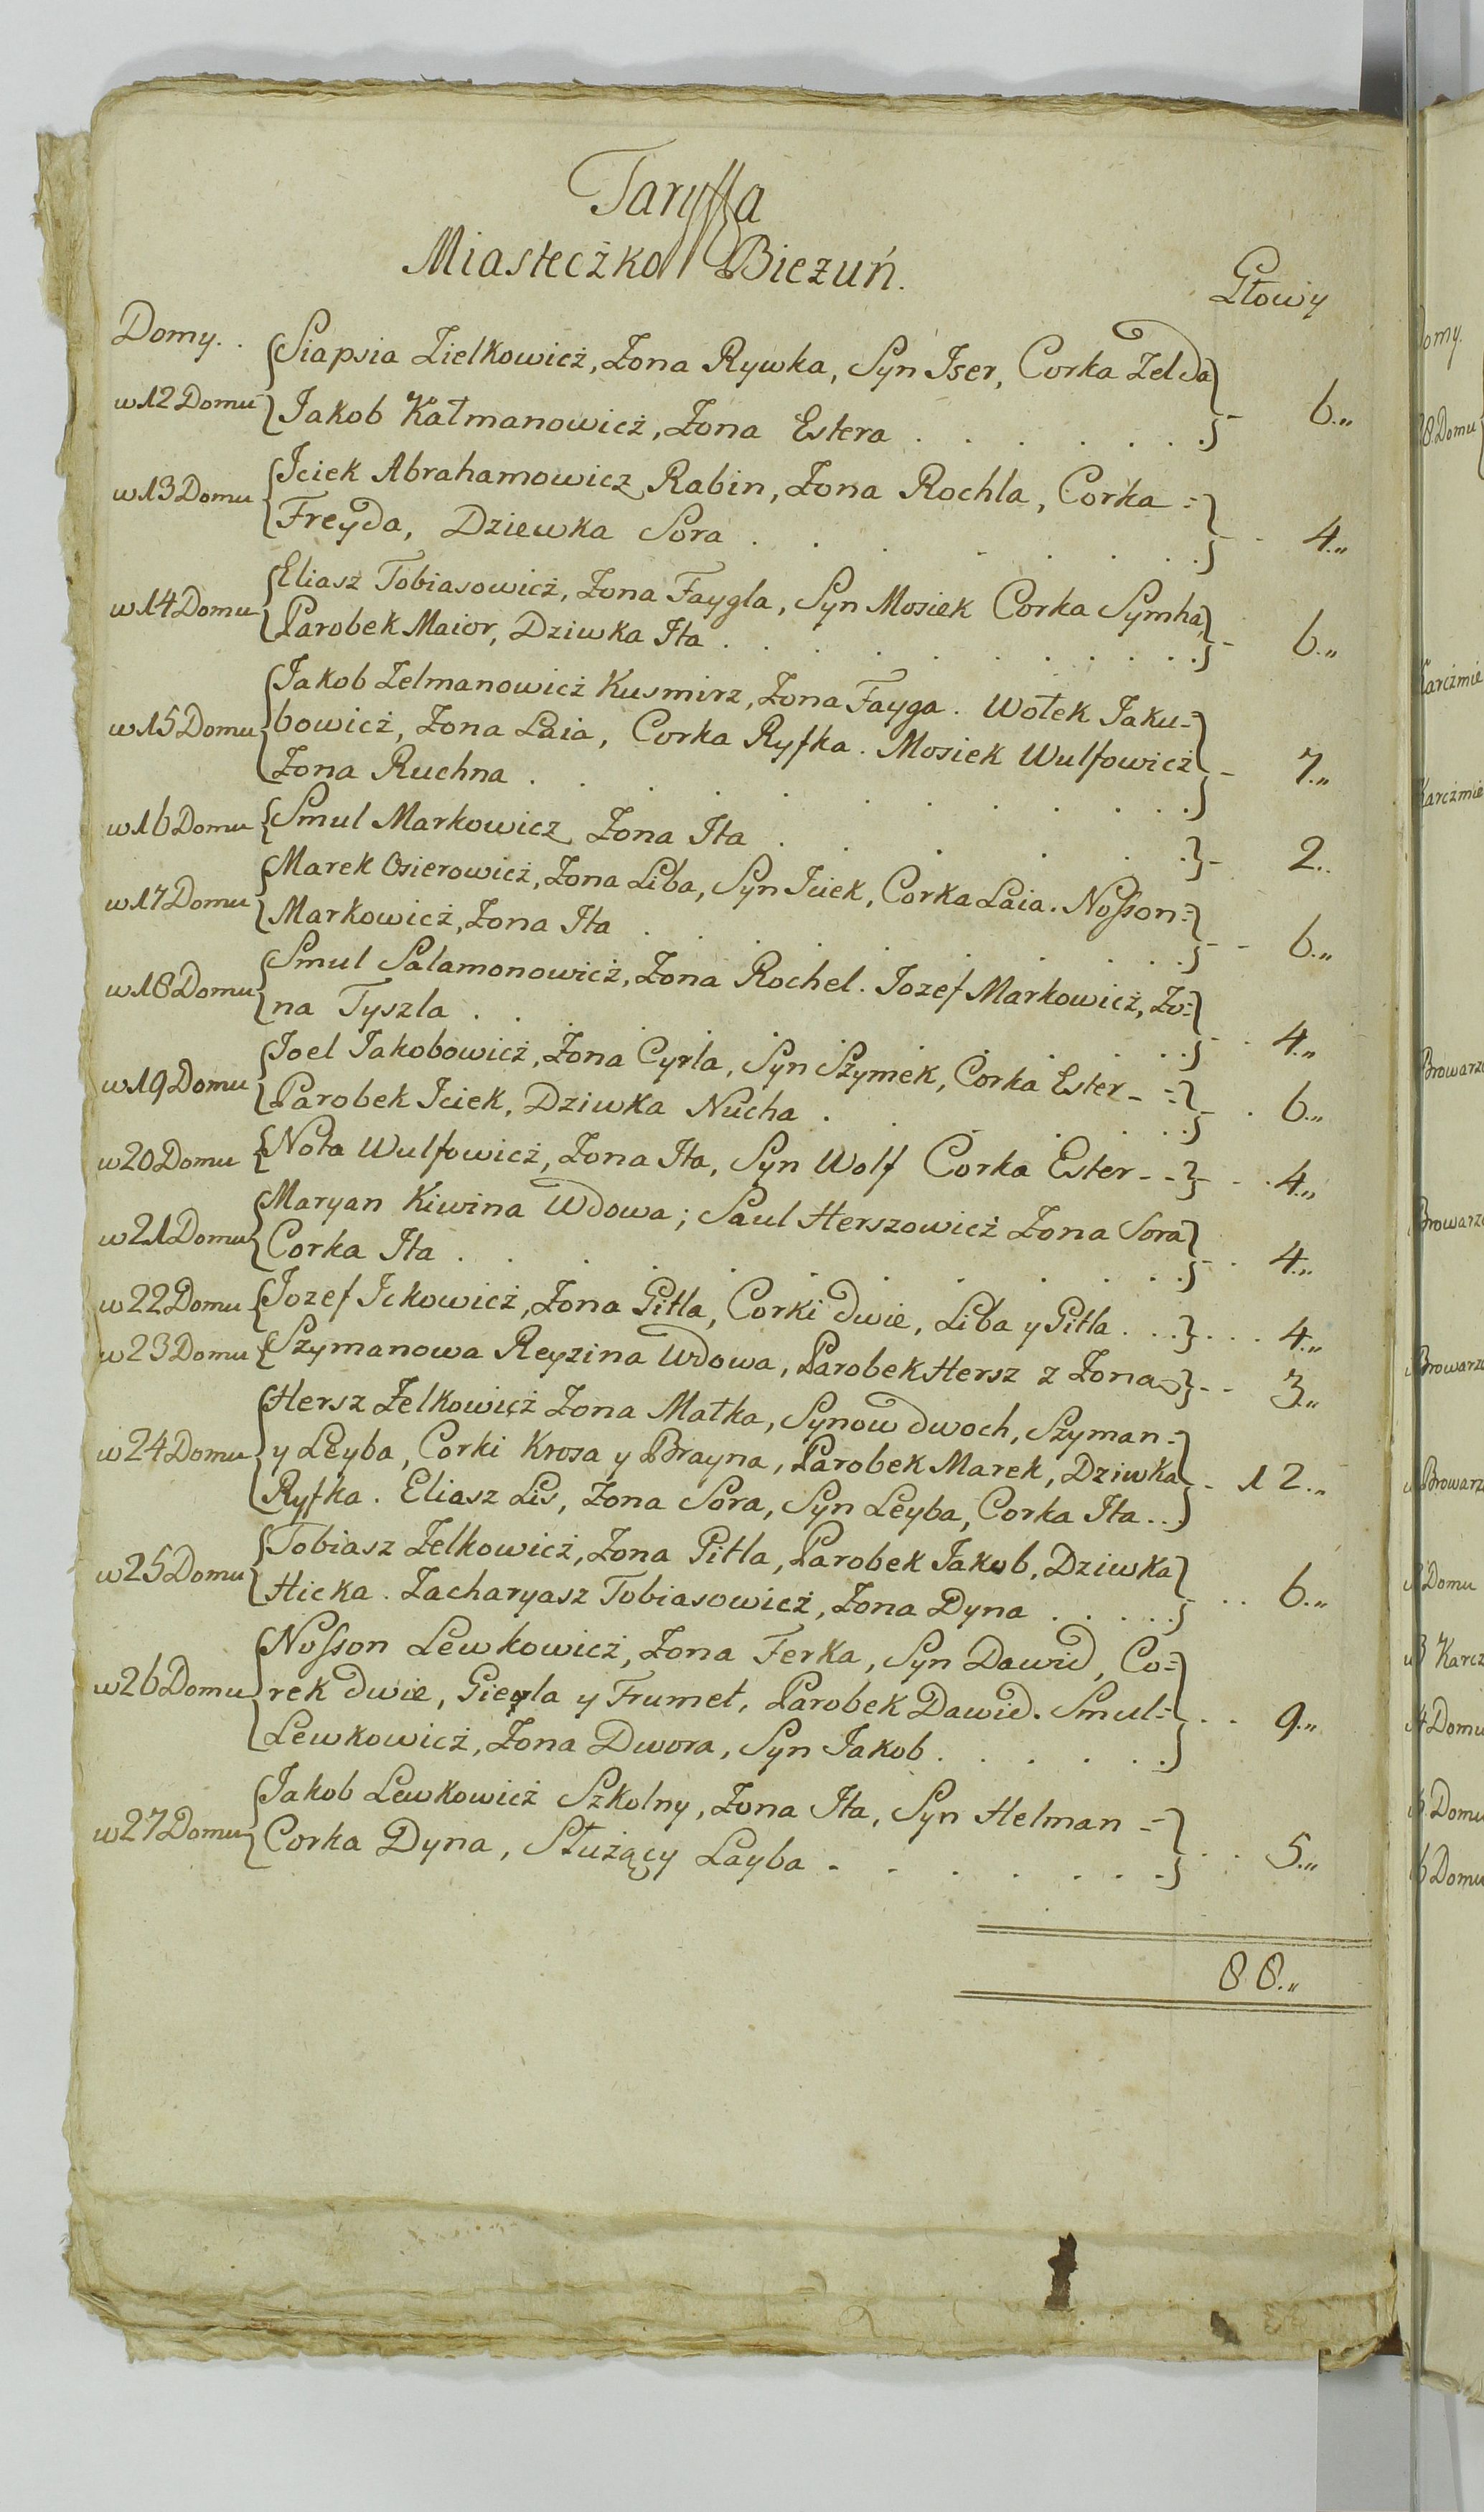 Taryffa
Miasteczko Bieżuń.
Głowy
Domy. .
w 12 Domu
Siapsia Zielkowicż, Żona Rywka, Syn Iser, Corka Zelda
Jakob Kałmanowicż, Żona Estera . . . . . . . - 6.„
w 13 Domu
Jciek Abrahamowicz Rabin, Żona Rochla, Corka =
Freyda, Dziewka Sora . . . . . . . . 4.„
w 14 Domu
Eliasz Tobiasowicż, Żona Faygla, Syn Mosiek Corka Symha,
Parobek Maior, Dziwka Ita . . . . . . . . - 6.„
w 15 Domu
Jakob Zelmanowicż Kusmirz, Żona Fayga. Wołek Jaku-
bowicż, Żona Laia, Corka Ryfka. Mosiek Wulfowicż
Żona Ruchna . . . . . . . . - 7.„
w 16 Domu
Smul Markowicz Żona Ita . . . . . . - 2..
w 17 Domu
Marek Osierowicż, Żona Liba, Syn Jciek, Corka Laia. Nosson=
Markowicż, Żona Ita . . . . . . . - - 6.„
w 18 Domu
Smul Salamonowicż, Żona Rochel. Jozef Markowicż, Żo=
na Tyszla . . . . . . . . . 4.„
w 19 Domu
Joel Jakobowicż, Żona Cyrla, Syn Szymek, Corka Ester - =
Parobek Jciek, Dziwka Nucha . . . . . . - . 6.„
w 20 Domu
Nota Wulfowicż, Żona Ita, Syn Wolf Corka Ester - - - . . 4.„
w 21 Domu
Maryan Kiwina Wdowa; Saul Herszowicż Żona Sora
Corka Ita . . . . . . . . - . 4.„
w 22 Domu
Jozef Jckowicż, Żona Gitla, Corki dwie, Liba y Gitla . . . . . . . 4.„
w 23 Domu
Szymanowa Reyzina Wdowa, Parobek Hersz z Żona - - 3.„
w 24 Domu
Hersz Zelkowicż Żona Małka, Synow dwoch, Szyman =
y Leyba, Corki Krosa y Brayna, Parobek Marek, Dziwka
Ryfka. Eliasz Lis, Żona Sora, Syn Leyba, Corka Ita . . . - 12.„
w 25 Domu
Tobiasz Zelkowicż, Żona Gitla, Parobek Jakub, Dziwka
Hicka. Zacharyasz Tobiasowicż, Żona Dyna . . . . . . . 6.„
w 26 Domu
Nosson Lewkowicż, Żona Ferka, Syn Dawid, Co=
rek dwie, Gieyla y Frumet, Parobek Dawid. Smul =
Lewkowicż, Żona Dwora, Syn Jakob . . . . . . . 9.„
w 27 Domu
Jakob Lewkowicż Szkolny, Żona Ita, Syn Helman =
Corka Dyna, Służący Layba - - . . . - - . . 5.„
88.„
Domy.
8 Domu
Karcżmie
Karcżmie
Browarz
Browarz
Browarz
Browarz
Domu
Karcz
4 Domu
Domu
6 Domu